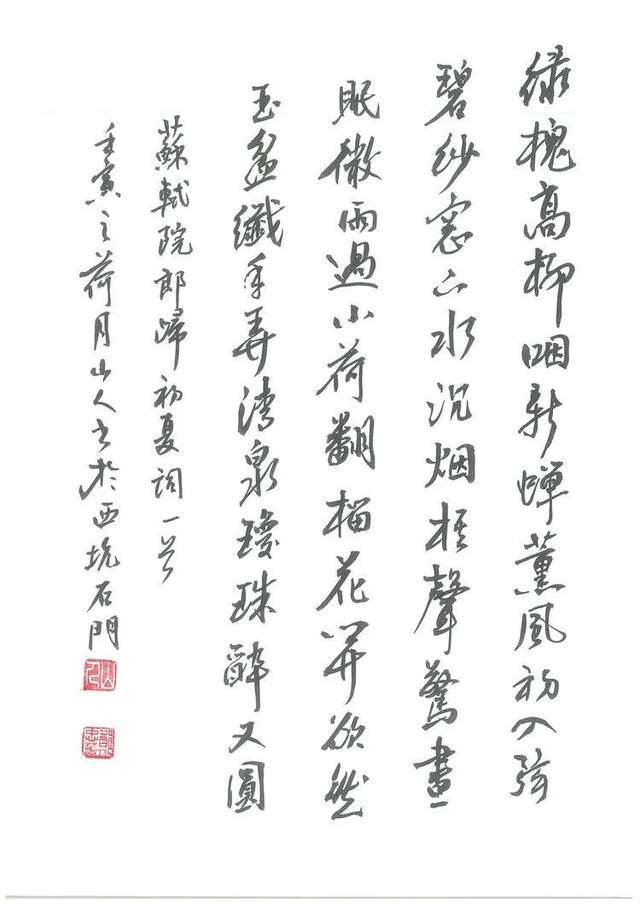 綠槐高柳咽新蟬薰風初入弦
碧紗窓下水沉烟棋聲驚晝
眠微雨過小荷翻榴花開欲然
玉盆纖手弄清泉瓊珠醉又圓
蘇軾院郎歸初夏詞一首
壬寅之荷月山人書於西坑石門
山人